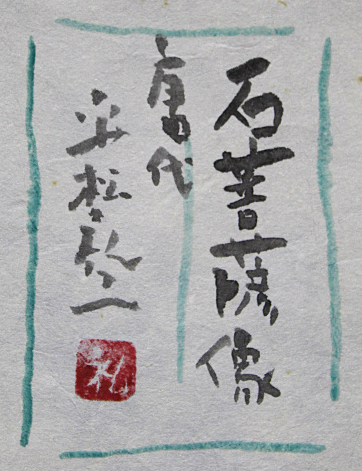 石菩薩像
唐代
平松